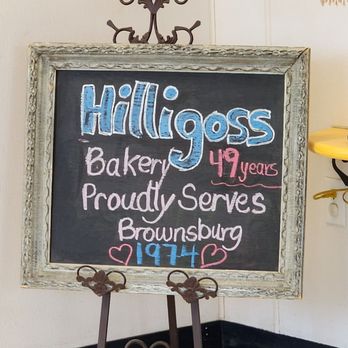 Hilligoss
Bakery 49 years
Proudly Serves
Brownsburg
1974